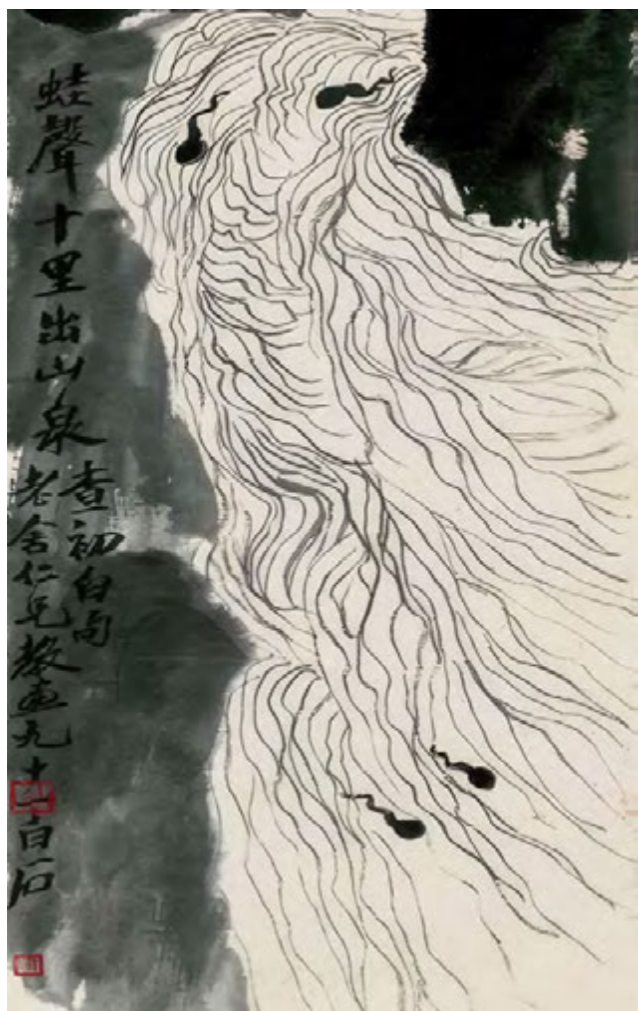 蛙聲十里出山泉
查初白句
老舍仁兄教画九十一白石